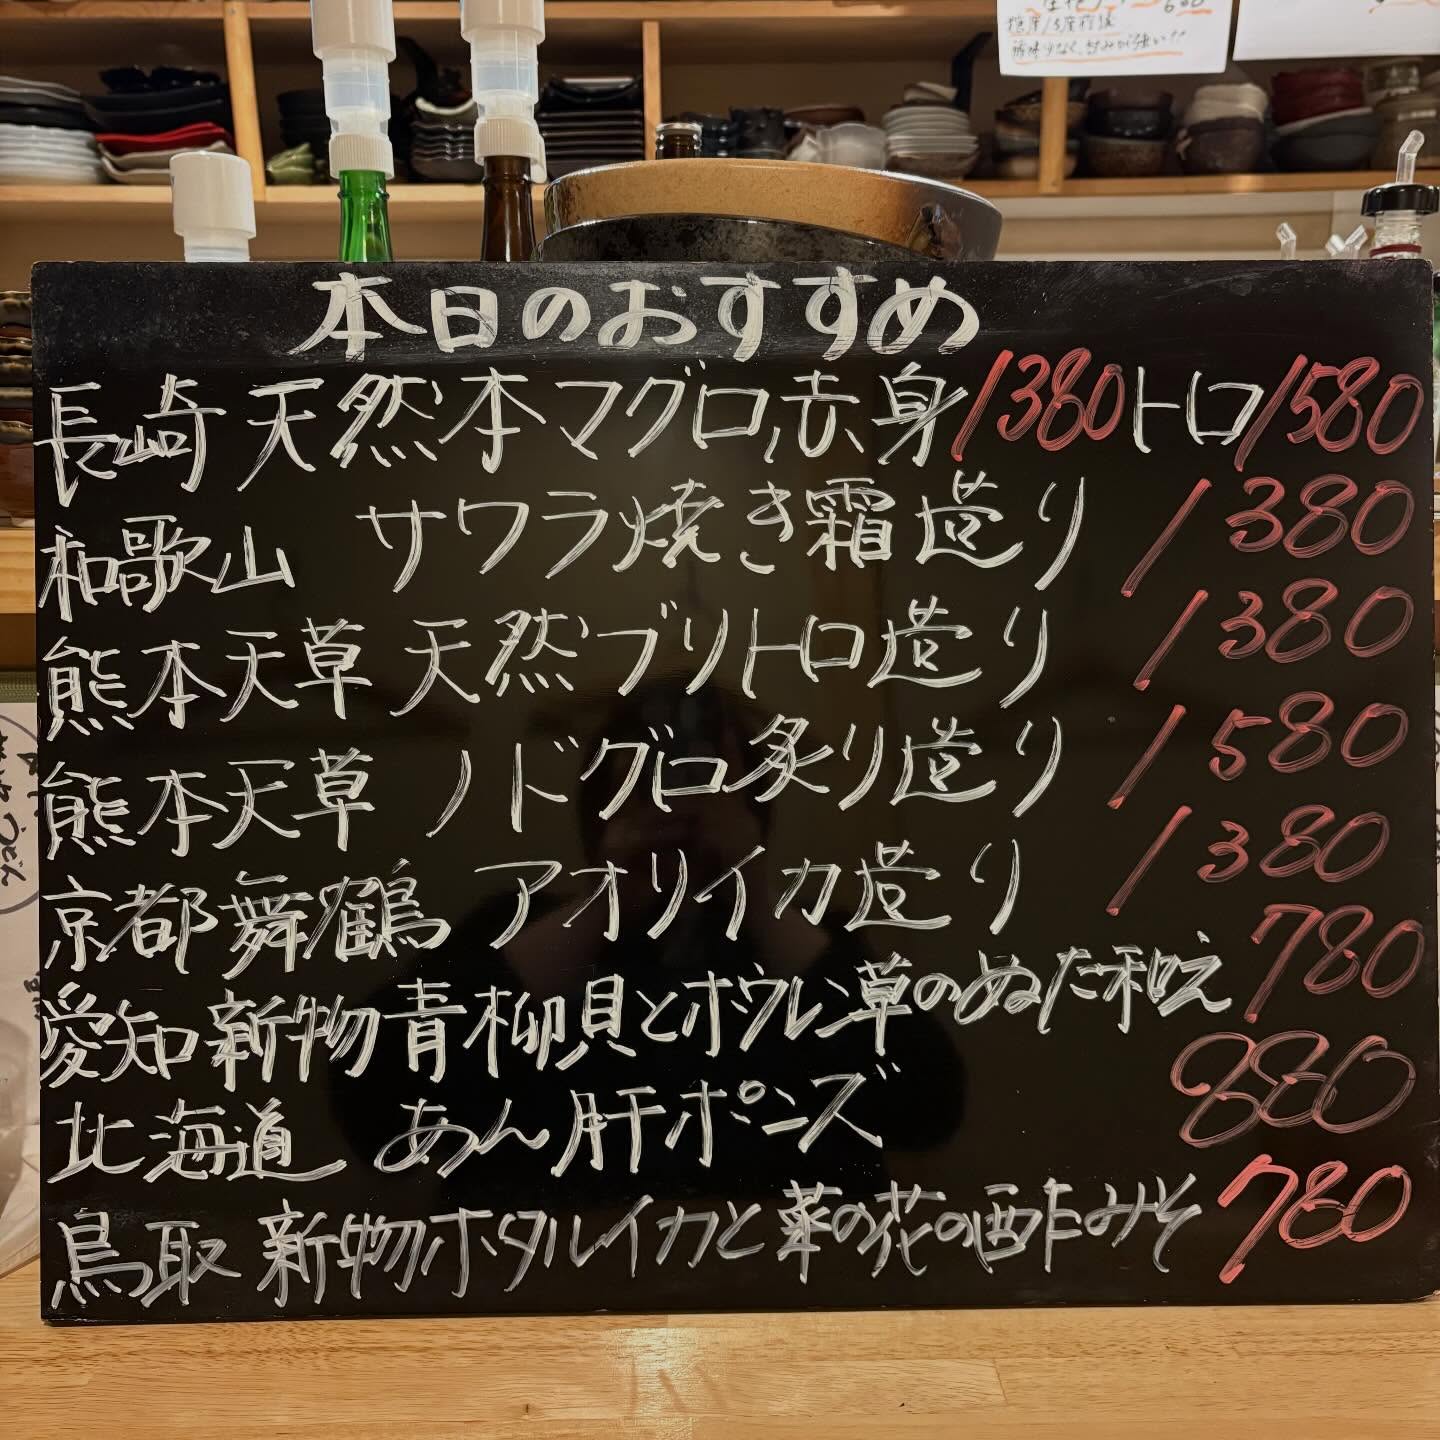 本日のおすすめ
長崎 天然本マグロ 赤身 1380 トロ 1580
和歌山 サワラ焼き霜造り 1380
熊本天草 天然ブリトロ造り 1380
熊本天草 ノドグロ炙り造り 1580
京都舞鶴 アオリイカ造り 1380
愛知 新物青柳貝とホウレン草のぬた和え 780
北海道 あん肝ポンズ 880
鳥取 新物ホタルイカと菜の花の酢みそ 780